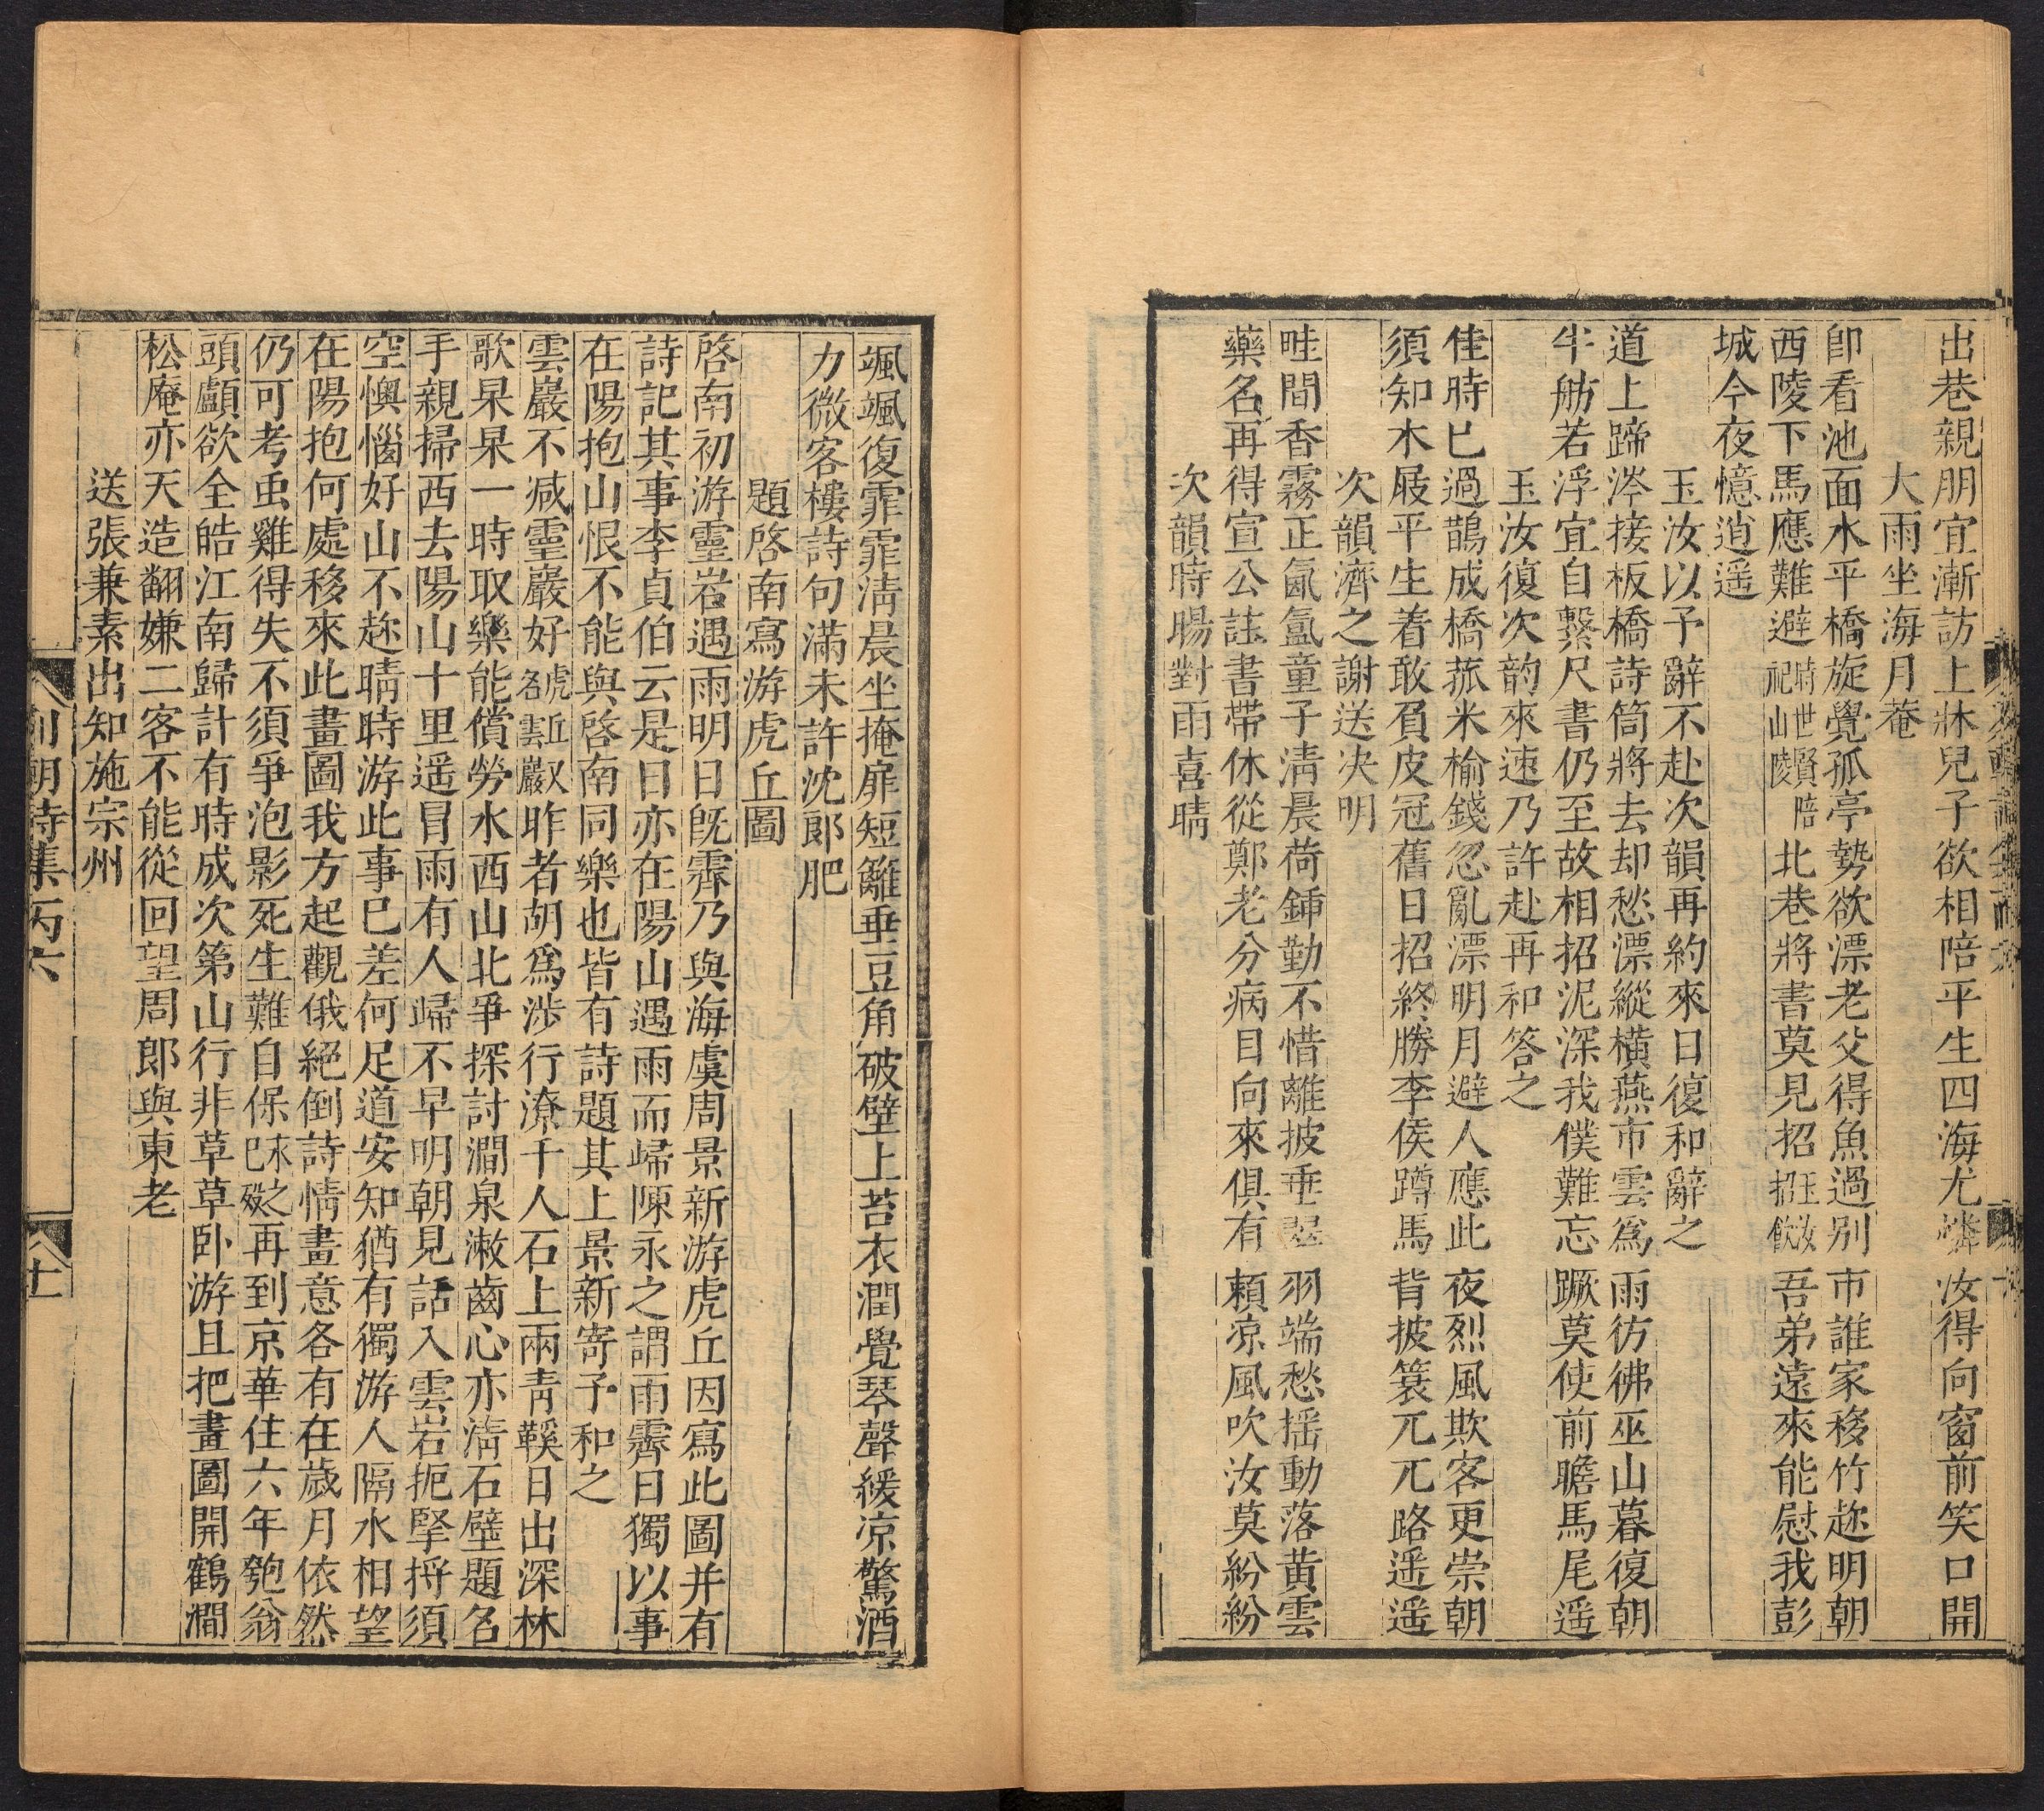 出巷親朋宜漸訪上牀兒子欲相陪平生四海尤憐汝得向窗前笑口開
大雨坐海月菴
卽看池面水平橋旋覺孤亭勢欲漂老父得魚過別市誰家移竹趂明朝
西陵下馬應難避時世賢陪祀山陵北巷將書莫見招玉汝招飲吾弟遠來能慰我彭
城今夜憶逍遥
玉汝以予辭不赴次韻再約來日復和辭之
道上蹄涔接板橋詩筒將去却愁漂縱橫燕市雲爲雨彷彿巫山暮復朝
牛舫若浮宜自繫尺書仍至故相招泥深我僕難忘蹶莫使前瞻馬尾遥
玉汝復次韵來速乃許赴再和答之
佳時已過鵲成橋菰米榆錢忽亂漂明月避人應此夜烈風欺客更崇朝
須知木屐平生着敢負皮冠舊日招終勝李侯蹲馬背披簑兀兀路遥遥
次韻濟之謝送决明
畦間香霧正氤氳童子淸晨荷鍤勤不惜離披垂翠羽端愁揺動落黄雲
藥名再得宣公註書帶休從鄭老分病目向來俱有賴凉風吹汝莫紛紛
次韻時暘對雨喜晴
颯颯復霏霏淸晨坐掩扉短籬垂豆角破壁上苔衣潤覺琴聲緩凉驚酒
力微客樓詩句滿未許沈郞肥
題啓南寫游虎丘圖
啓南初游靈岩遇雨明日旣霽乃與海虞周景新游虎丘因寫此圖并有
詩記其事李貞伯云是日亦在陽山遇雨而歸陳永之謂雨霽日獨以事
在陽抱山恨不能與啓南同樂也皆有詩題其上景新寄予和之
雲巖不減靈巖好虎丘又名雲巖昨者胡爲渉行潦千人石上兩靑鞵日出深林
歌杲杲一時取樂能償勞水西山北爭探討澗泉漱齒心亦淸石壁題名
手親掃西去陽山十里遥冒雨有人歸不早明朝見話入雲岩扼掔捋須
空懊惱好山不趂晴時游此事已差何足道安知猶有獨游人隔水相望
在陽抱何處移來此畫圖我方起觀俄絕倒詩情畫意各有在歳月依然
仍可考虫雞得失不須爭泡影死生難自保永之已歿再到京華住六年匏翁
頭顱欲全皓江南歸計有時成次第山行非草草卧游且把畫圖開鶴澗
松庵亦天造翻嫌二客不能從回望周郞與東老
送張兼素出知施宗州
列朝詩集丙六
十一